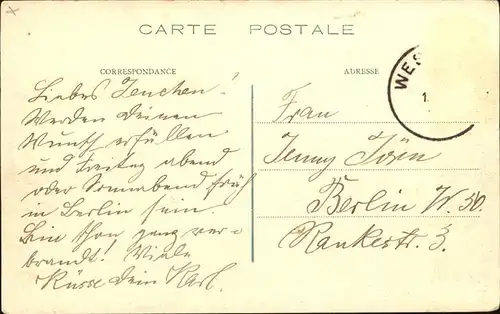 CARTE POSTALE
CORRESPONDANCE
Liebes Jenchen!
Werden Deinen
Wunsch erfüllen
und Freitag abend
oder Sonnabend früh
in Berlin sein.
Bin schon ganz ver-
brandt! Viele
Küsse Dein Karl.
ADRESSE
Frau
Jenny
Berlin W. 50.
Rankestr. 3.
WES
1.